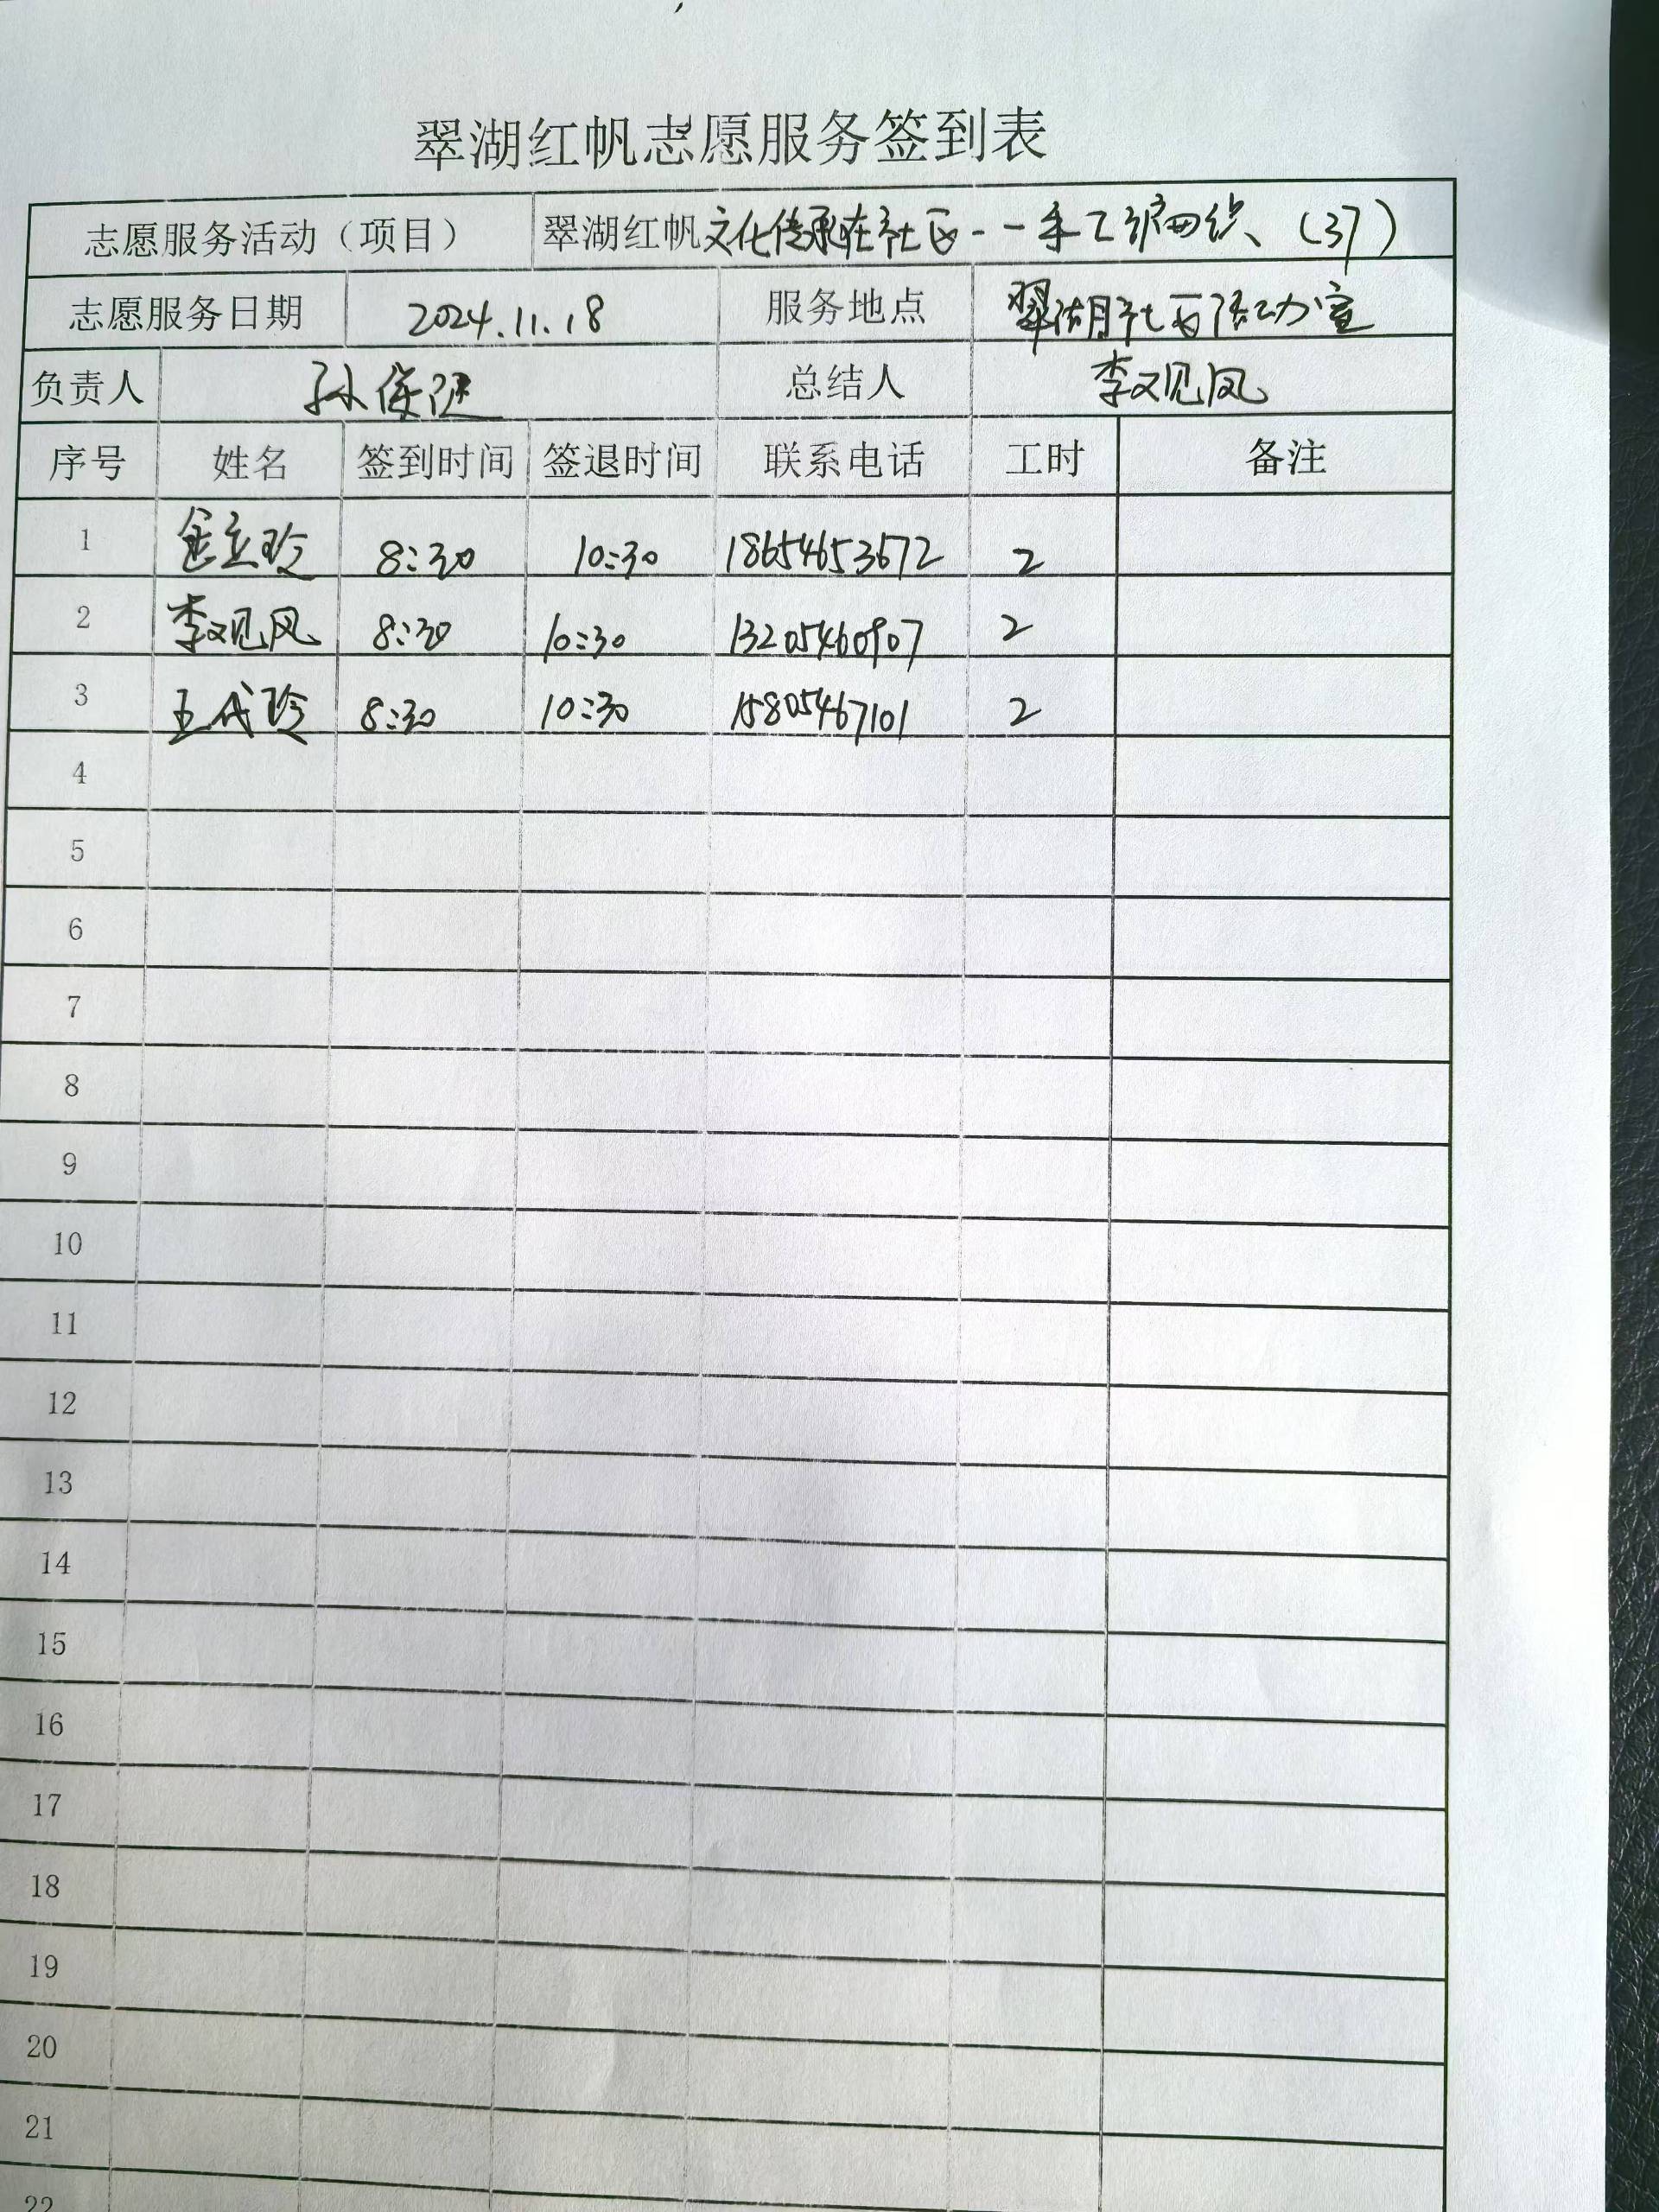 翠湖红帆志愿服务签到表
志愿服务活动（项目） 翠湖红帆文化传承在社区--手工编织、（37）
志愿服务日期 2024.11.18 服务地点 翠湖社区活动室
负责人 孙 总结人 李观凤
序号 姓名 签到时间 签退时间 联系电话 工时 备注
1 玲 8:30 10:30 18654653672 2
2 李观凤 8:30 10:30 13205460907 2
3 王代玲 8:30 10:30 15805467101 2
4
5
6
7
8
9
10
11
12
13
14
15
16
17
18
19
20
21
22